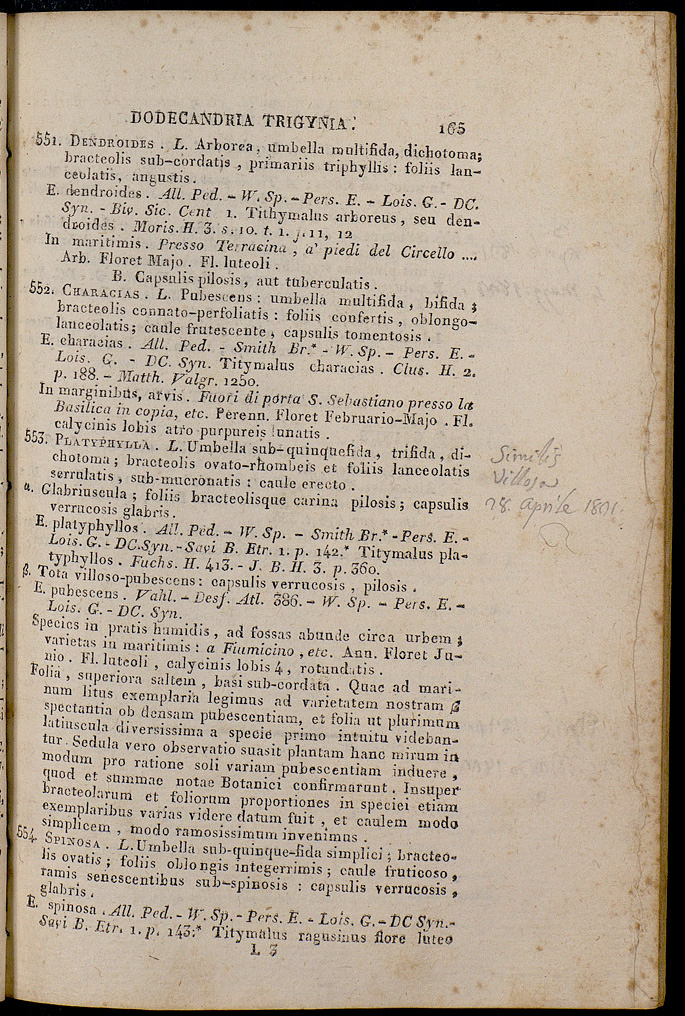 DODECANDRIA TRIGYNIA.
165
551. DENDROIDES. L. Arborea, umbella multifida, dichotoma;
bracteolis sub-cordatis, primariis triphyllis: foliis lan-
ceolatis, angustis.
E. dendroides. All. Ped. - W. Sp. - Pers. E. - Lois. G. - DC.
Syn. - Biv. Sic. Cent 1. Tithymalus arboreus, seu den-
droides. Moris. H. 3. s. 10. t. 1. f. 11, 12
In maritimis. Presso Terracina, a' piedi del Circello ....
Arb. Floret Majo. Fl. luteoli.
B. Capsulis pilosis, aut tuberculatis.
552. CHARACIAS. L. Pubescens: umbella multifida, bifida;
bracteolis connato-perfoliatis: foliis confertis, oblongo-
lanceolatis; caule frutescente, capsulis tomentosis.
E. characias. All. Ped. - Smith Br.* - W. Sp. - Pers. E. -
Lois. G. - DC. Syn. Titymalus characias. Clus. H. 2.
p. 188. - Matth. Valgr. 1250.
In marginibus, arvis. Fuori di porta S. Sebastiano presso la
Basilica in copia, etc. Perenn. Floret Februario-Majo. Fl.
calycinis lobis atro purpureis lunatis.
553. PLATYPHYLLA. L. Umbella sub-quinquefida, trifida, di-
chotoma; bracteolis ovato-rhombeis et foliis lanceolatis
serrulatis, sub-mucronatis: caule erecto.
α. Glabriuscula; foliis bracteolisque carina pilosis; capsulis
verrucosis glabris.
E. platyphyllos. All. Ped. - W. Sp. - Smith Br.* - Pers. E. -
Lois. G. - DC. Syn. - Savi B. Etr. 1. p. 142.* Titymalus pla-
typhyllos. Fuchs. H. 413. - J. B. H. 3. p. 360.
β. Tota villoso-pubescens: capsulis verrucosis, pilosis.
E. pubescens. Vahl. - Desf. Atl. 386. - W. Sp. - Pers. E. -
Lois. G. - DC. Syn.
Species in pratis humidis, ad fossas abunde circa urbem;
varietas in maritimis: a Fiumicino, etc. Ann. Floret Ju-
nio. Fl. luteoli, calycinis lobis 4, rotundatis.
Folia, superiora saltem, basi sub-cordata. Quae ad mari-
num litus exemplaria legimus ad varietatem nostram β
spectantia ob densam pubescentiam, et folia ut plurimum
latiuscula diversissima a specie primo intuitu videban-
tur. Sedula vero observatio suasit plantam hanc mirum in
modum pro ratione soli variam pubescentiam induere,
quod et summae notae Botanici confirmarunt. Insuper
bracteolarum et foliorum proportiones in speciei etiam
exemplaribus varias videre datum fuit, et caulem modo
simplicem, modo ramosissimum invenimus.
554. SPINOSA. L. Umbella sub-quinque-fida simplici; bracteo-
lis ovatis; foliis oblongis integerrimis; caule fruticoso,
ramis senescentibus sub-spinosis: capsulis verrucosis,
glabris.
E. spinosa. All. Ped. - W. Sp. - Pers. E. - Lois. G. - DC Syn. -
Savi B. Etr. 1. p. 143.* Titymalus ragusinus flore luteo
L 3
Similis
Villosa
28. Aprile 1801.